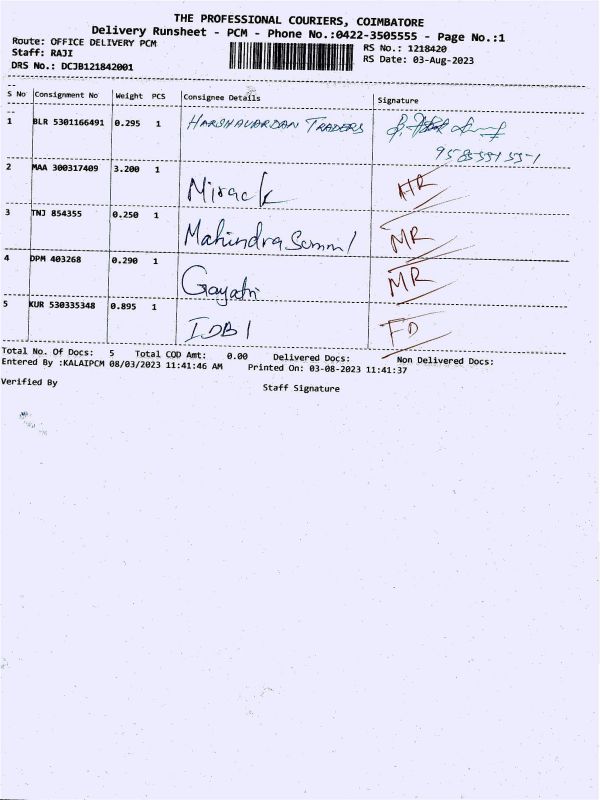 THE PROFESSIONAL COURIERS, COIMBATORE
Delivery Runsheet - PCM - Phone No.:0422-3505555 - Page No.:1
Route: OFFICE DELIVERY PCM
RS No.: 1218420
Staff: RAJI
RS Date: 03-Aug-2023
DRS No.: DCJB121842001
S No Consignment No Weight PCS Consignee Details Signature
1 BLR 5301166491 0.295 1 HARSHAVARDAN TRADERS
9585551551
2 MAA 300317409 3.200 1 Mirack HR
3 TNJ 854355 0.250 1 Mahindra Somml MR
4 DPM 403268 0.290 1 Gayatri MR
5 KUR 530335348 0.895 1 IDBI FD
Total No. Of Docs: 5 Total COD Amt: 0.00 Delivered Docs: Non Delivered Docs:
Entered By :KALAIPCM 08/03/2023 11:41:46 AM Printed On: 03-08-2023 11:41:37
Verified By Staff Signature